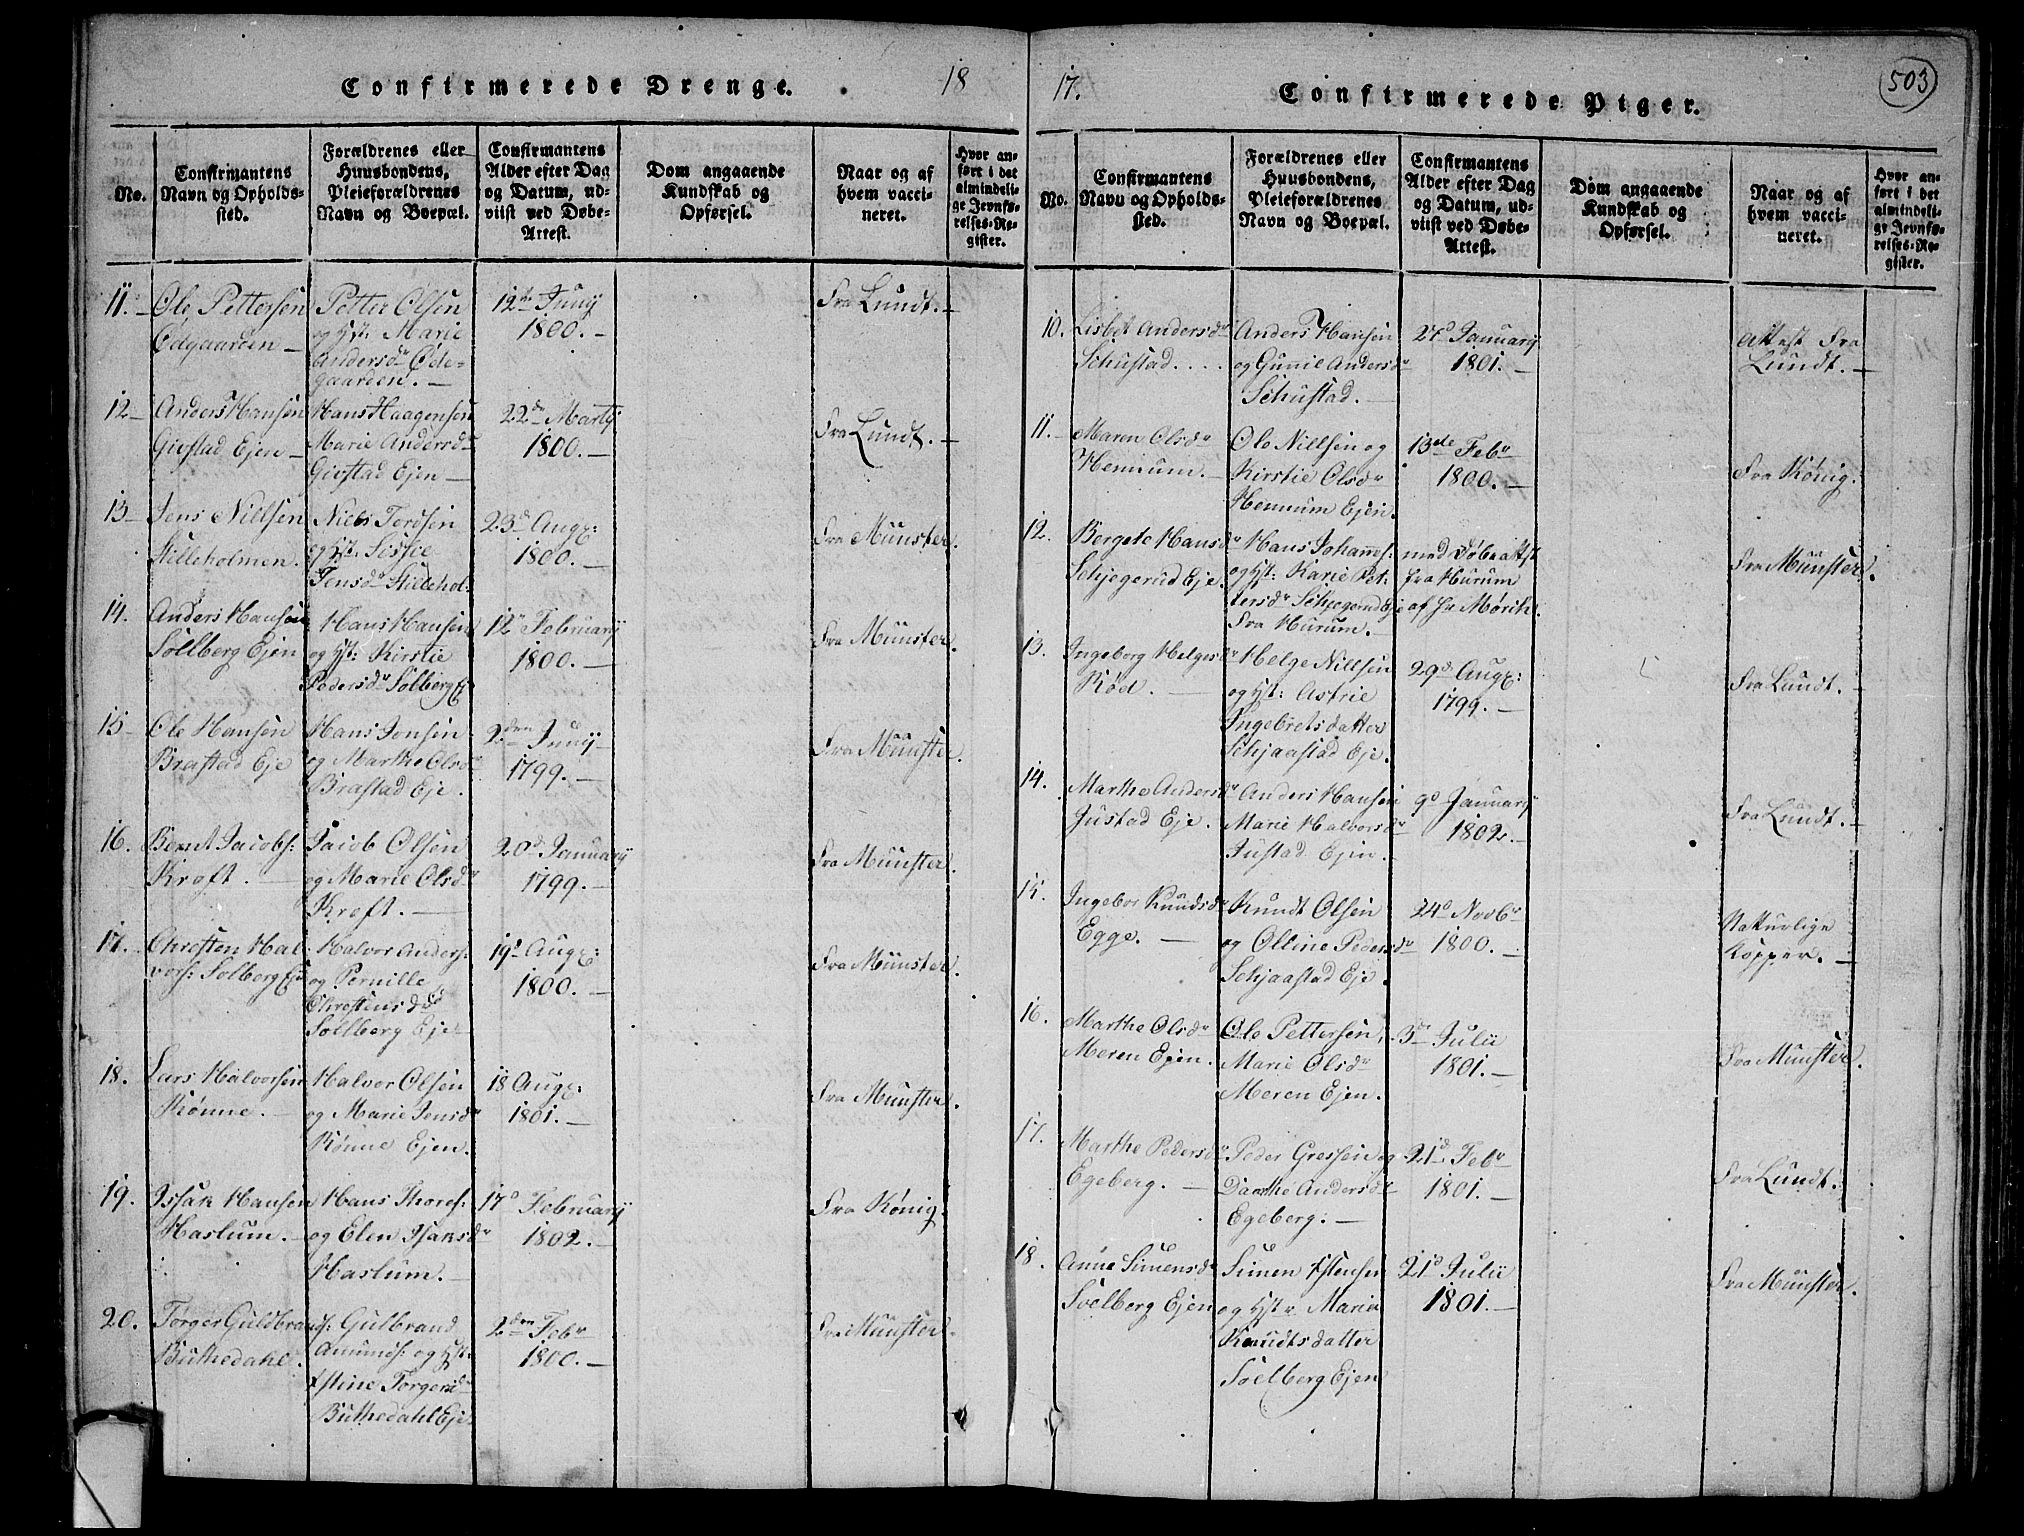 Confirmerede Drenge.
18
No.
Confirmantens
Navn og Opholds-
sted.
Forældrenes eller
Huusbondens,
Pleieforældrenes
Navn og Boepæl.
Confirmantens
Alder efter Dag
og Datum, ud-
viist ved Døbe-
Attest.
Dom angaaende
Kundskab og
Opførsel.
Naar og af
hvem vacci-
neret.
Hvor an-
ført i det
almindeli-
ge Jevnfø-
relses-Re-
gister.
11.
Ole Pettersen
Ødgaarden
Petter Olsen
og Hst: Marie
Andersdr Øde-
gaarden.
12te Junij
1800.
Fra Lundt.
12
Anders Hansen
Givstad Ejen
Hans Haagensen
Marie Andersdr
Givstad Ejen
22de Martij
1800.
Fra Lundt.
13
Jens Nillsen
Stilleholmen.
Niels Tordsen
og Hst: Sissie
Jensdr Stillehol:
23d Augs:
1800.
Fra Münster.
14.
Anders Hansen
Sollberg Ejen
Hans Hansen
og Hst: Kirstie
Pedersdr Solberg Ej
12te Februarij
1800.
Fra Münster.
15
Ole Hansen
Brastad Eje
Hans Jonsen
og Marthe Olsdr
Brastad Eje.
2den Junij
1799.
Fra Münster.
16.
Bernt Jacobs:
Kroft.
Jacob Olsen
og Marie Olsdr
Kroft.
20d Januarij
1799.
Fra Münster.
17.
Chresten Hal-
vors: Solberg Eje
Halvor Anders:
og Pernille
Chrestensdr
Sollberg Eje
19d Augs:
1800.
Fra Münster.
18.
Lars Halvorsen
Rønne.
Halvor Olsen
og Marie Jensdr
Rønne Ejen.
18 Augs:
1801.
Fra Münster.
19.
Issak Hansen
Haslum.
Hans Thores:
og Elen Isaksdr
Haslum.
17d Februarij
1802.
Fra Kønig.
20.
Torger Guldbrands:
Buthedahl.
Gulbrand
Amunds: og Hst:
Estine Torgersdr
Buthedahl Eje
2den Febr
1800.
Fra Münster.
17.
Confirmerede Piger.
503
No.
Confirmantens
Navn og Opholds-
sted.
Forældrenes eller
Huusbondens,
Pleieforældrenes
Navn og Boepæl.
Confirmantens
Alder efter Dag
og Datum, ud-
viist ved Døbe-
Attest.
Dom angaaende
Kundskab og
Opførsel.
Naar og af
hvem vacci-
neret.
Hvor an-
ført i det
almindeli-
ge Jevnfø-
relses-Re-
gister.
10.
Lisbet Andersdr
Schustad....
Anders Hansen
og Gunnil Andersdr
Schustad.
27d Januarij
1801.
Attest Fra
Lundt.
11.
Maren Olsdr
Hennum.
Ole Nillsen og
Kirstie Olsdr
Hennum Ejen.
13de Febr
1800.
Fra Kønig.
12.
Bergete Hansdr
Schjegerud Eje.
Hans Johannes:
og Hst: Karie Pet-
tersdr Schjegerud Eje
Fra Hurum.
med Døbe attst
fra Hurum
af Hr Mørch.
Fra Münster.
13.
Ingeborg Helgesdr
Rød.
Helge Nillsen
og Hst: Astrie
Ingebretsdatter
Schjaastad Eje.
29d Augs:
1799.
Fra Lundt.
14.
Marthe Andersdr
Justad Eje.
Anders Hansen
Marie Halvorsdr
Justad Ejen.
9d Januarij
1802.
Fra Lundt.
15.
Ingebor Knudsdr
Egge.
Knudt Olsen
og Olline Pedersdr
Schjaastad Eje.
24d Novbr
1800.
Naturlige
Kopper.
16.
Marthe Olsdr
Meren Ejen.
Ole Pettersen,
Marie Olsdr
Meren Ejen.
3de Julii
1801.
Fra Münster.
17.
Marthe Pedersdr
Egeberg.
Peder Gressen og
Daarthe Andersdr
Egeberg.
21d Febr
1801.
Fra Lundt.
18.
Anne Simensdr
Soelberg Ejen
Simen Estensen
og Hst: Marie
Knudtsdatter
Soelberg Ejen
21d Julii
1801.
Fra Münster.